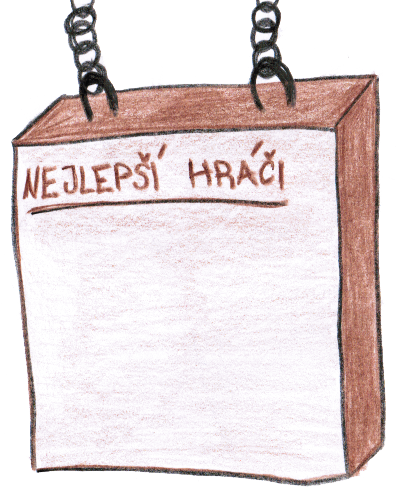 NEJLEPŠÍ HRÁČI